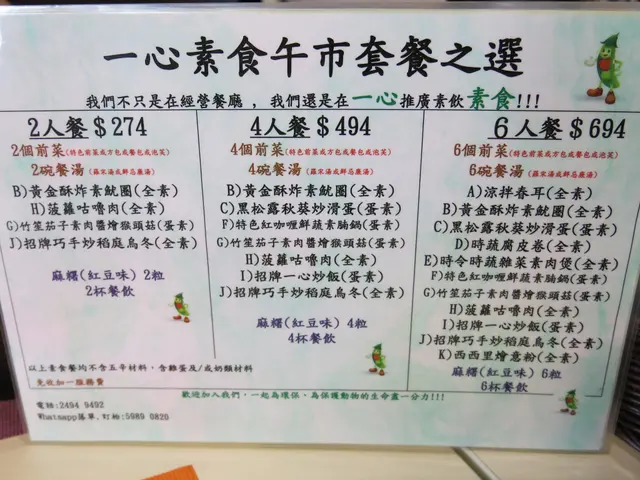 一心素食午市套餐之選
我們不只是在經營餐廳，我們還是在一心推廣素飲素食!!!
2人餐 $274
2個前菜(特色前菜或方包或餐包或泡芙)
2碗餐湯(羅宋湯或鮮忌廉湯)
B)黃金酥炸素魷圈(全素)
H)菠蘿咕嚕肉(全素)
G)竹笙茄子素肉醬燴猴頭菇(蛋素)
J)招牌巧手炒稻庭烏冬(全素)
麻糬(紅豆味) 2粒
2杯餐飲
4人餐 $494
4個前菜(特色前菜或方包或餐包或泡芙)
4碗餐湯(羅宋湯或鮮忌廉湯)
B)黃金酥炸素魷圈(全素)
C)黑松露秋葵炒滑蛋(蛋素)
F)特色紅咖喱鮮蔬素腩鍋(蛋素)
G)竹笙茄子素肉醬燴猴頭菇(蛋素)
H)菠蘿咕嚕肉(全素)
I)招牌一心炒飯(蛋素)
J)招牌巧手炒稻庭烏冬(全素)
麻糬(紅豆味) 4粒
4杯餐飲
6人餐 $694
6個前菜(特色前菜或方包或餐包或泡芙)
6碗餐湯(羅宋湯或鮮忌廉湯)
A)涼拌舂耳(全素)
B)黃金酥炸素魷圈(全素)
C)黑松露秋葵炒滑蛋(蛋素)
D)時蔬腐皮卷(全素)
E)時令時蔬雜菜素肉煲(全素)
F)特色紅咖喱鮮蔬素腩鍋(蛋素)
G)竹笙茄子素肉醬燴猴頭菇(蛋素)
H)菠蘿咕嚕肉(全素)
I)招牌一心炒飯(蛋素)
J)招牌巧手炒稻庭烏冬(全素)
K)西西里燴意粉(全素)
麻糬(紅豆味) 6粒
6杯餐飲
以上素食餐均不含五辛材料，含雞蛋及/或奶類材料
免收加一服務費
歡迎加入我們，一起為環保，為保護動物的生命盡一分力!!!
電話:2494 9492
Whatsapp落單,訂枱:5989 0826